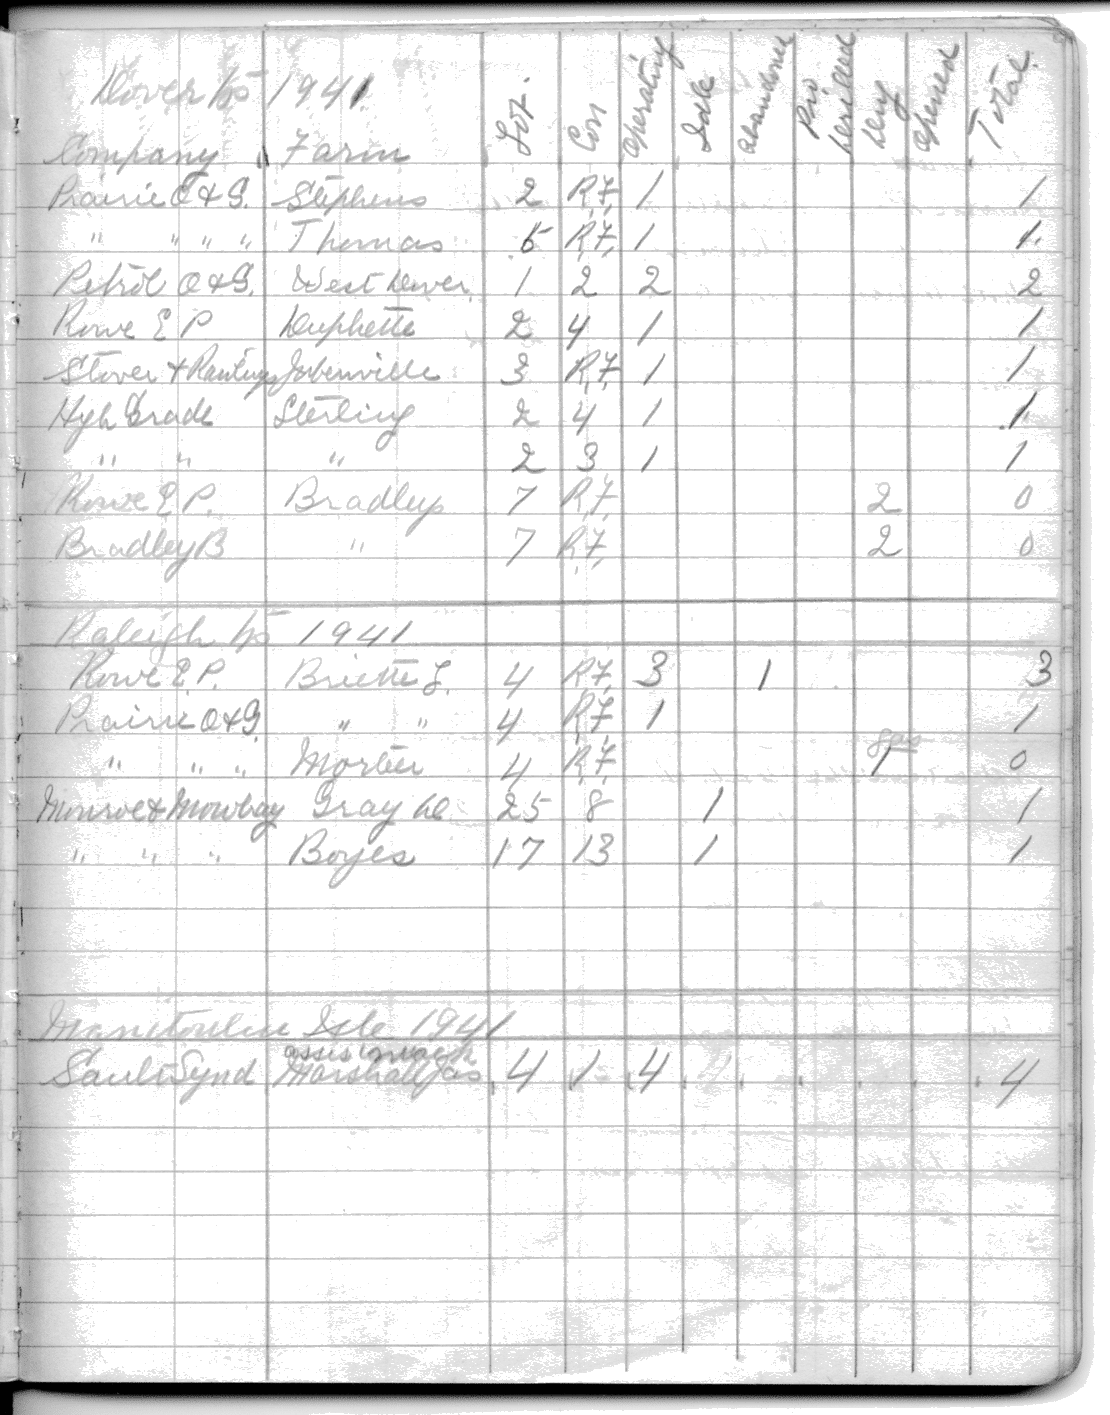 Dover Tp 1941
Company " Farm Lot. Con Operating Idle Abandoned Pro Drilled Dry Opened Total.
Prairie O & G. Stephens 2 R.F. 1 1
" " " " Thomas 5 R.F. 1 1
Petrol O & G. West Dover 1 2 2 2
Rowe E P Duphette 2 4 1 1
Stover & Rawlings Jubenville 3 R.F. 1 1
High Grade Sterling 2 4 1 1
" " " 2 3 1 1
Rowe E P. Bradley 7 R.F. 2 0
Bradley B " 7 R.F. 2 0
Raleigh Tp 1941
Rowe E. P. Briette J. 4 R.F. 3 1 3
Prairie O & G. " " 4 R.F. 1 1
gas
" " " Mortier 4 R.F. 1 0
Monroe & Mowbray Gray 25 8 1 1
" " " Boyes 17 13 1 1
Manitoulin Isle 1941
Sault Synd Marshall Jas 4 1 4 4